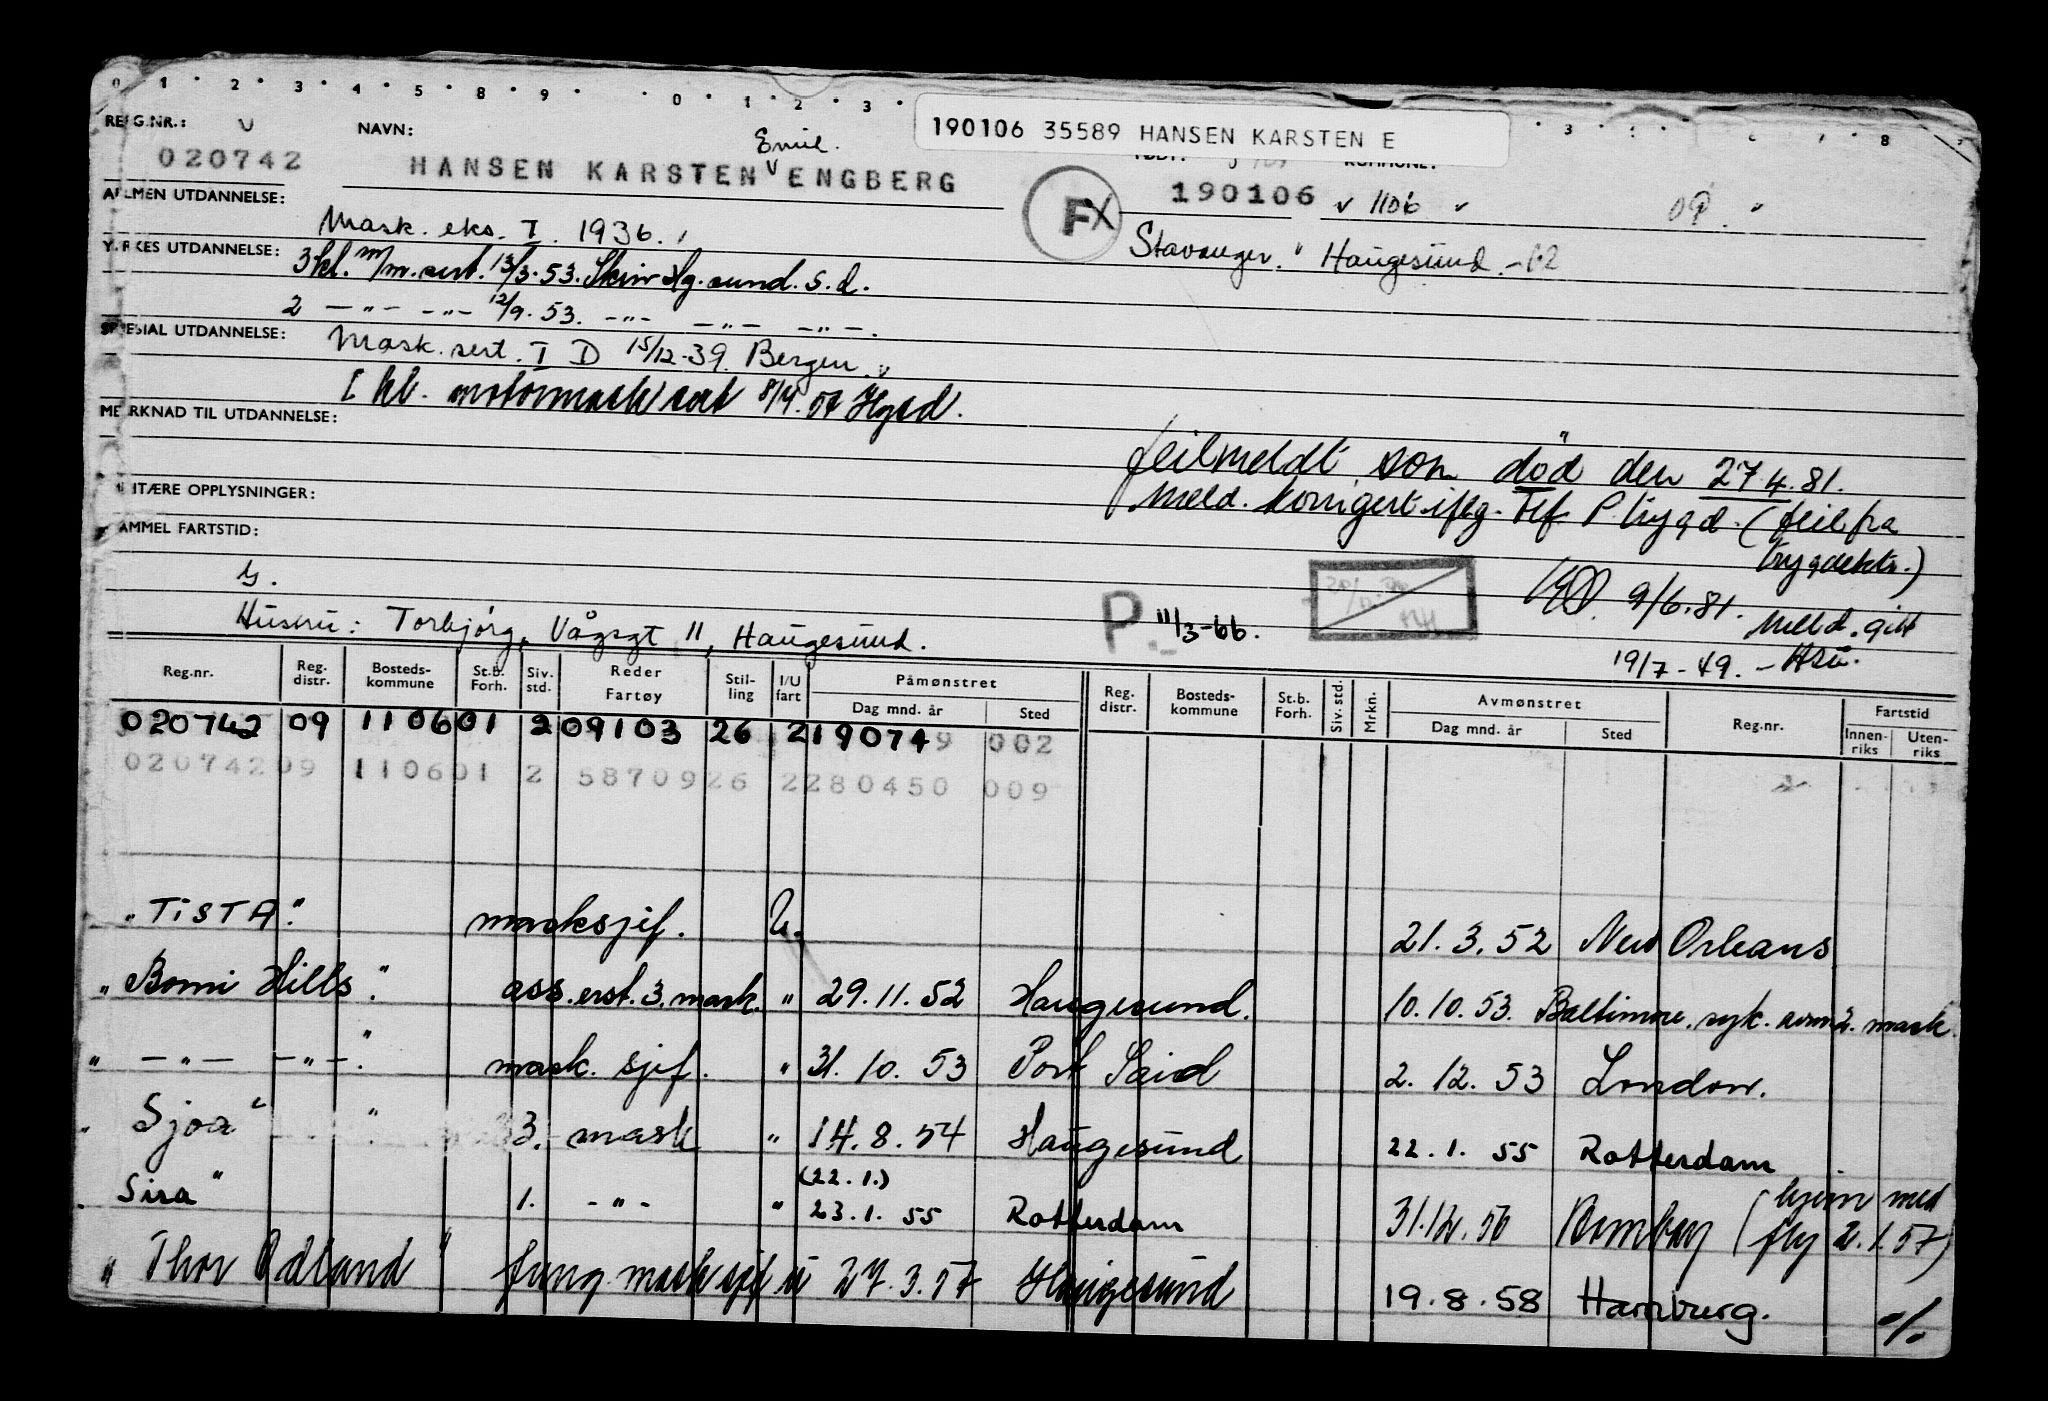 0 1 2 3 4 5 8 9 0 1 2 3
190106 35589 HANSEN KARSTEN E
REG.NR.: NAVN:
Emil.
020742 HANSEN KARSTEN V ENGBERG
190106 v 1106 v
FX
ALLMEN UTDANNELSE:
Mask. eks. I. 1936.
Stavanger. Haugesund.
YRKES UTDANNELSE: 3 kl. m/m. sert. 13/3-53. Skinv Hg.sund. S.d.
2 — " — — " — 12/9-53. — " — — " — — " —.
SPESIAL UTDANNELSE: Mask. sert. I D 15/12-39. Bergen.
I kl. motormask sert Hgsd.
MERKNAD TIL UTDANNELSE:
feilmeldt som død den 27.4.81.
MILITÆRE OPPLYSNINGER:
Meld. korrigert iflg. Tlf. P.trygd. (feil fra
GAMMEL FARTSTID:
trygdektr.)
9/6.81. Meld. gitt
Hustru: Torbjörg, Vågsgt 11, Haugesund.
P. 11/3-66.
19/7-49. - Hsu.
Reg.nr. Reg. distr. Bosteds-kommune St.b. Forh. Siv. std. Reder Fartøy Stil-ling I/U fart Påmønstret Dag mnd. år Sted Reg. distr. Bosteds-kommune St.b. Forh. Siv. std. Mrkn. Avmønstret Dag mnd. år Sted Reg.nr. Fartstid Innen-riks Uten-riks
020742 09 1106 01 2 09103 26 2 190749 002
020742 09 1106 01 2 58709 26 2 280450 009
"TISTA". masksjef. U. 21.3.52 New Orleans
"Bomi Hills". ass. erst. 3. mask. " 29.11.52 Haugesund. 10.10.53. Baltimore. syk. avm 2. mask.
" — " — — " — ". mask. sjef. " 31.10.53 Port Said 2.12.53 London.
"Sjoa" 3. mask " 14.8.54 Haugesund 22.1.55 Rotterdam
"Sira" 1. - " - " (22.1.) 23.1.55 Rotterdam 31.12.56 Bombay (hjem med fly 2.1.57)
"Thor Odland" fung. mask sjef u 27.3.57 Haugesund 19.8.58 Hamburg. ./.